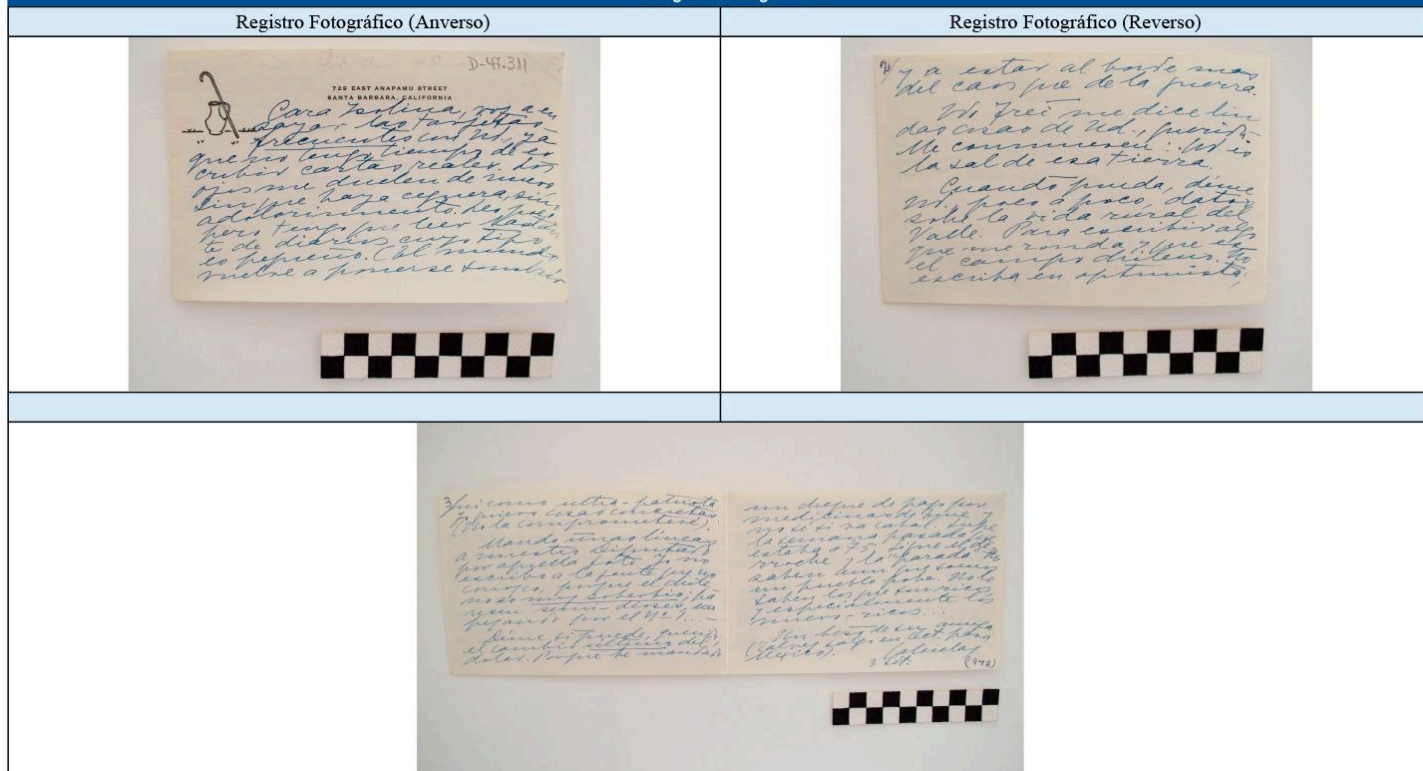 Registro Fotográfico (Anverso)
Registro Fotográfico (Reverso)
D-47.311
729 EAST ANAPAMU STREET
SANTA BARBARA, CALIFORNIA
Cara Isolina, voy a en
sayar las tarjetas
frecuentes con Ud., ya
que no tengo tiempo de es
cribir cartas reales. Los
ojos me duelen de nuevo,
sin que haya ceguera, sino
adolorimiento. Leo poco
pero tengo que leer bastan
te de diarios cuyo tipo
es pequeño. (El mundo
vuelve a ponerse sombrío
2/ y a estar al borde mas
del caos que de la guerra.
Frei me dice lin
das cosas de Ud., querida.
Me conmueven: Ud. es
la sal de esa tierra.
Cuando pueda, déme
Ud., poco a poco, datos
sobre la vida rural del
Valle. Para escribir algo
que me ronda y que es
el campo chileno. No
escriba en optimista,
3/ ni como ultra-patriota
quiero cosas concretas
(No la comprometeré).
Mando unas líneas
a nuestro Diputado
por aquella foto. Yo no
escribo a la gente que no
conozco, porque el chile
no es muy soberbio; pa
recen semi-dioses, em
pezando por el Nº 1...
Déme si puede, querida
el cambio último del
dolar. Porque he mandado
un cheque de pago por
medicinas
no sé si va cabal. Supe
la semana pasada que
estaba a 75. Sigue el de
rroche y la parada. No
saben aun que somos
un pueblo pobre. No lo
saben los que son ricos
y especialmente los
nuevos-ricos...
Un beso de su
(Talvez salgo en Oct. para
México). Gabriela
3 Set. (948)